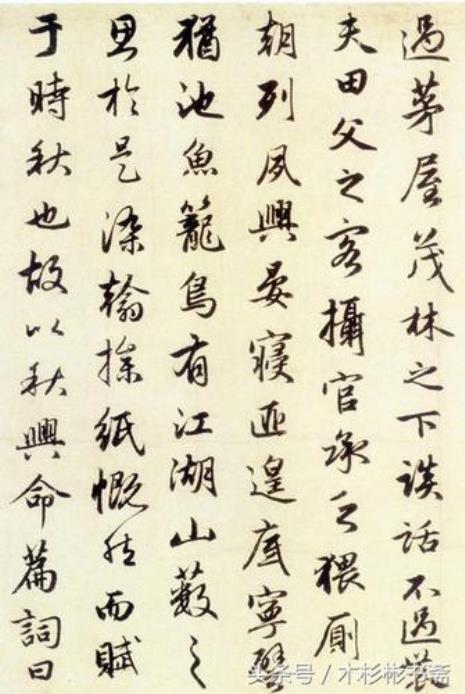 過茅屋茂林之下談話不過農
夫田父之客攝官承乏猥厠
朝列夙興晏寢匪遑底寧譬
猶池魚籠鳥有江湖山藪之
思於是染翰操紙慨然而賦
于時秋也故以秋興命篇詞曰
头条号 / 木杉彬书斋